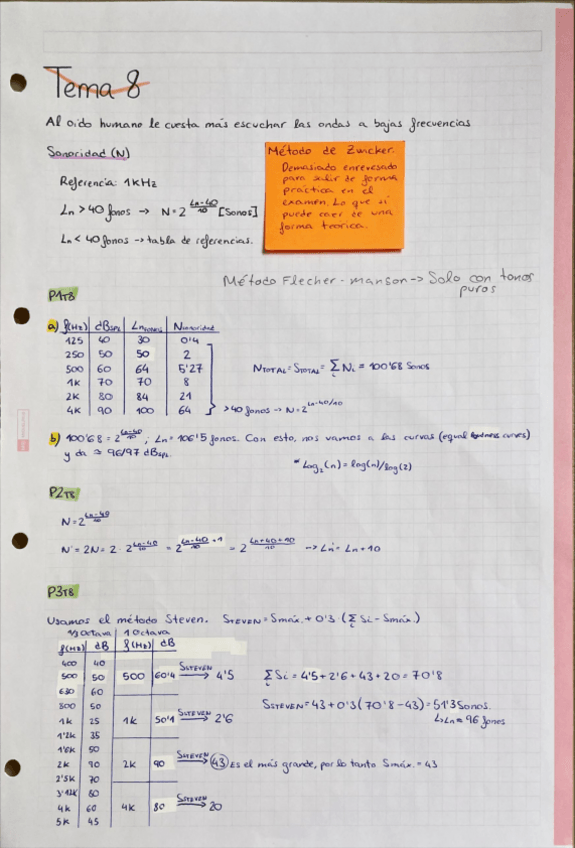 Tema 8
Al oido humano le cuesta más escuchar las ondas a bajas frecuencias
Sonoridad (N)
Referencia: 1KHz
Ln > 40 fonos → N = 2^(Ln-40/10) [Sonos]
Ln < 40 fonos → tabla de referencias.
Método de Zwicker.
Demasiado enrevesado
para salir de forma
práctica en el
examen. Lo que si
puede caer de una
forma teorica.
Método Flecher-manson → Solo con tonos
puros
P1T8
a) f(Hz) dBSPL Ln(FONOS) N(sonoridad)
125 40 30 0'4
250 50 50 2
500 60 64 5'27
1K 70 70 8
2K 80 84 21
4K 90 100 64
NTOTAL = STOTAL = Σi Ni = 100'68 Sonos
>40 fonos → N = 2^(Ln-40/10)
b) 100'68 = 2^(Ln-40/10) ; Ln = 106'5 fonos. Con esto, nos vamos a las curvas (equal loudness curves)
y da ≈ 96/97 dBSPL
* Log2(n) = log(n)/log(2)
P2T8
N = 2^(Ln-40/10)
N' = 2N = 2 · 2^(Ln-40/10) = 2^(Ln-40/10 + 1) = 2^(Ln+40+10/10) → Ln' = Ln + 10
P3T8
Usamos el método Steven. SSTEVEN = Smáx. + 0'3 · (Σi Si - Smáx.)
1/3 Octava 1 Octava
f(Hz) dB f(Hz) dB
400 40
500 50 500 60'4 SSTEVEN → 4'5
630 60
800 50
1K 25 1K 50'1 SSTEVEN → 2'6
1'2K 35
1'6K 50
2K 90 2K 90 SSTEVEN → 43 Es el más grande, por lo tanto Smáx. = 43
2'5K 70
3'12K 80
4K 60 4K 80 SSTEVEN → 20
5K 45
Σi Si = 4'5 + 2'6 + 43 + 20 = 70'8
SSTEVEN = 43 + 0'3 (70'8 - 43) = 51'3 Sonos.
↳ Ln = 96 fonos